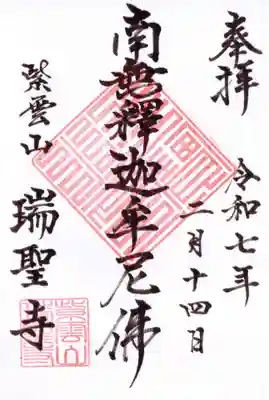 奉拝
令和七年
二月十四日
南無釋迦牟尼佛
紫雲山
瑞聖寺